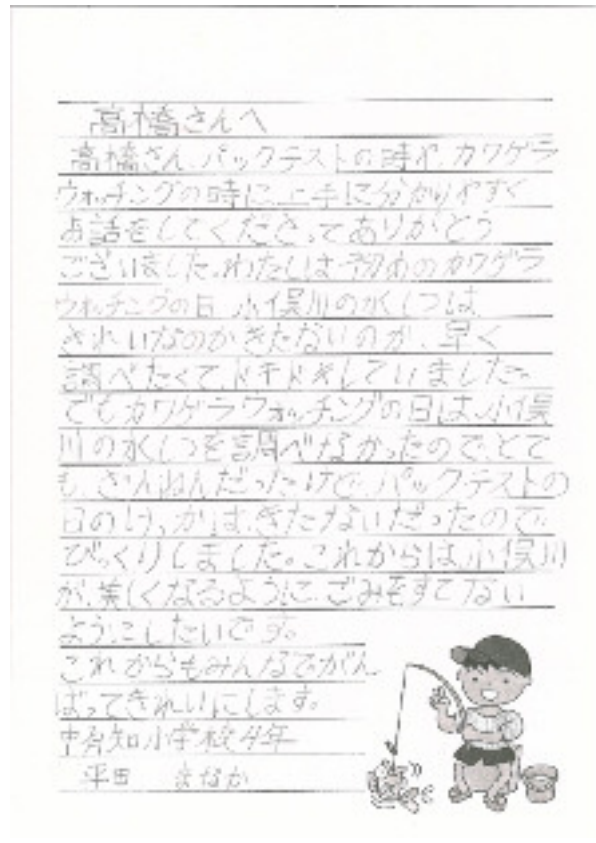 高橋さんへ
高橋さん、パックテストの時や、カワゲラ
ウォッチングの時に、上手に分かりやすく
お話をしてくださってありがとう
ございました。わたしは、初めのカワゲラ
ウォッチングの日、小俣川の水しつは、
きれいなのか、きたないのか、早く
調べたくて、ドキドキしていました。
でもカワゲラウォッチングの日は、小俣
川の水しつを調べなかったので、とて
も、ざんねんだったけど、パックテストの
日のけっかは、きたないだったので、
びっくりしました。これからは、小俣川
が、美しくなるように、ごみをすてない
ようにしたいです。
これからもみんなでがん
ばってきれいにします。
中有知小学校4年
平田 まなか